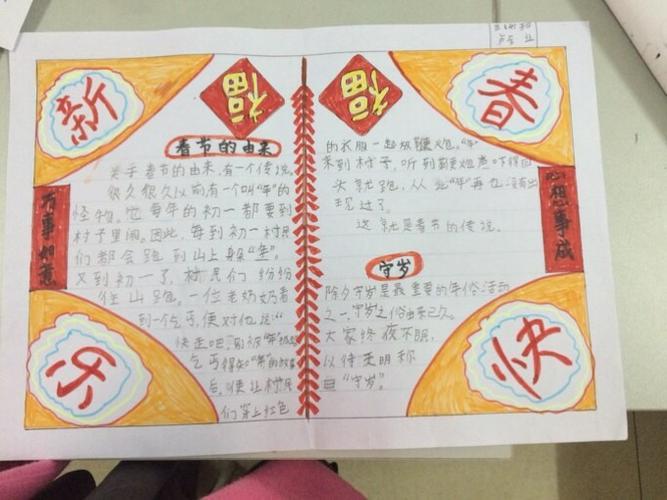 新
福
福
春
春节的由来
关于春节的由来,有一个传说。
很久很久以前有一个叫“年”的
怪物。它每年的初一都要到
村子里闹。因此,每到初一村民
们都会跑到山上躲“年”。
又到初一了,村民们纷纷
往山跑。一位老奶奶看
到一个乞丐,便对他说:“
快走吧,别被“年”
乞丐得知“年”的故事
后,便让村民
们穿上红色
的衣服一起放鞭炮。“年”
来到村子,听到鞭炮声吓得
头就跑,从此“年”再也没有出
现过了。
这就是春节的传说。
守岁
除夕守岁是最重要的年俗活动
之一,守岁之俗由来已久。
大家终夜不眠,
以待天明称
曰“守岁”。
万事如意
心想事成
乐
快